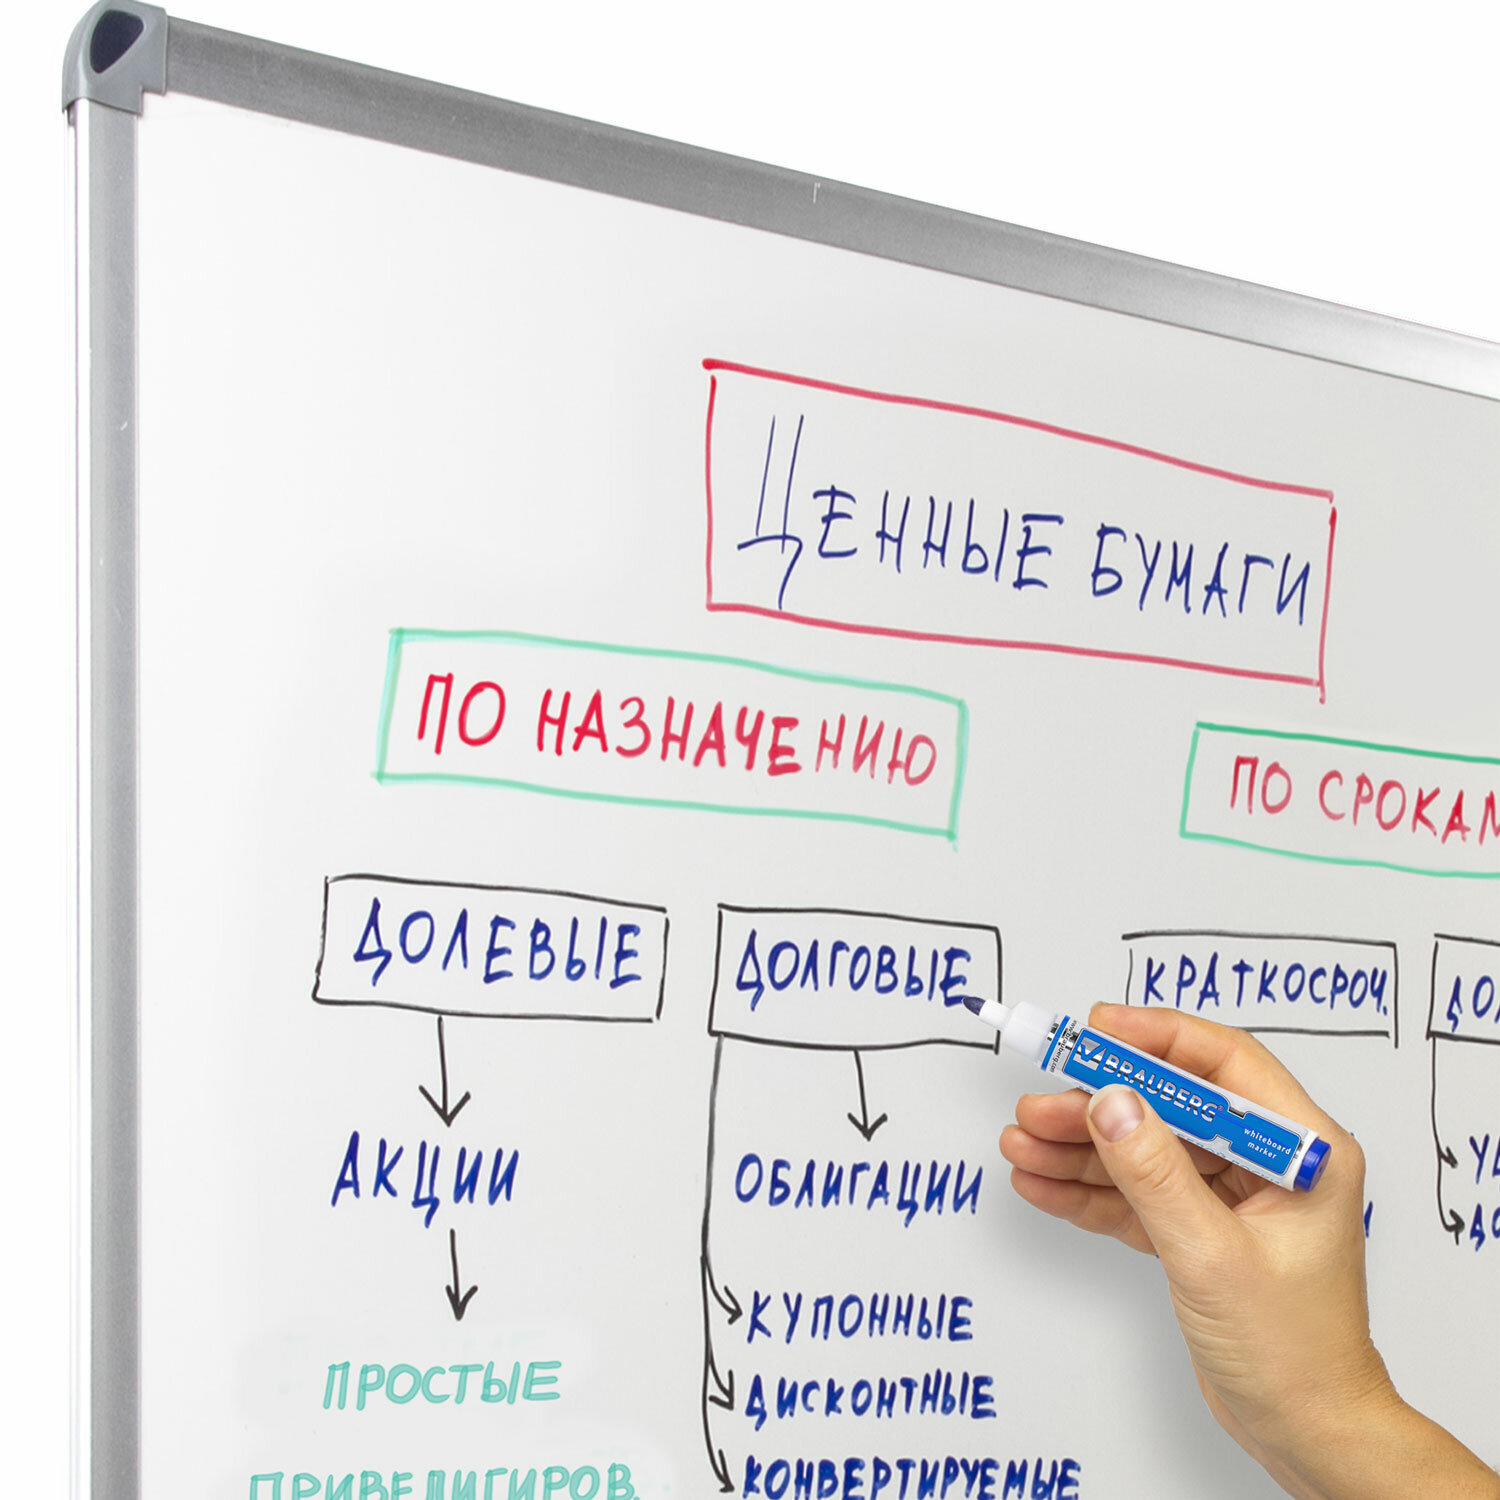 ЦЕННЫЕ БУМАГИ
ПО НАЗНАЧЕНИЮ
ПО СРОКАМ
ДОЛЕВЫЕ
ДОЛГОВЫЕ
КРАТКОСРОЧ.
АКЦИИ
ОБЛИГАЦИИ
КУПОННЫЕ
ДИСКОНТНЫЕ
КОНВЕРТИРУЕМЫЕ
ПРОСТЫЕ
ПРИВЕЛИГИРОВ.
BRAUBERG
whiteboard
marker
www.brauberg.com